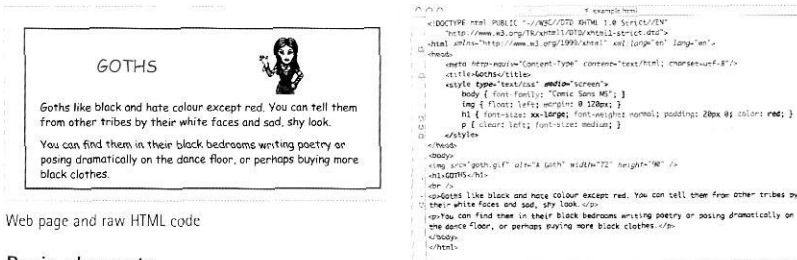 GOTHS
Goths like black and hate colour except red. You can tell them
from other tribes by their white faces and sad, shy look.
You can find them in their black bedrooms writing poetry or
posing dramatically on the dance floor, or perhaps buying more
black clothes.
Web page and raw HTML code
example.html
<!DOCTYPE html PUBLIC "-//W3C//DTD XHTML 1.0 Strict//EN"
"http://www.w3.org/TR/xhtml1/DTD/xhtml1-strict.dtd">
<html xmlns="http://www.w3.org/1999/xhtml" xml:lang="en" lang="en">
<head>
<meta http-equiv="Content-Type" content="text/html; charset=utf-8"/>
<title>Goths</title>
<style type="text/css" media="screen">
body { font-family: "Comic Sans MS"; }
img { float: left; margin: 0 120px; }
h1 { font-size: xx-large; font-weight: normal; padding: 20px 0; color: red; }
p { clear: left; font-size: medium; }
</style>
</head>
<body>
<img src="goth.gif" alt="A Goth" width="72" height="90" />
<h1>GOTHS</h1>
<br />
<p>Goths like black and hate colour except red. You can tell them from other tribes by
their white faces and sad, shy look.</p>
<p>You can find them in their black bedrooms writing poetry or posing dramatically on
the dance floor, or perhaps buying more black clothes.</p>
</body>
</html>